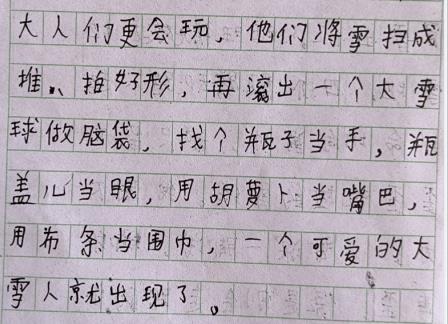 大人们更会玩，他们将雪扫成
推、拍好形，再滚出一个大雪
球做脑袋，找个瓶子当手，瓶
盖儿当眼，用胡萝卜当嘴巴，
用布条当围巾，一个可爱的大
雪人就出现了。